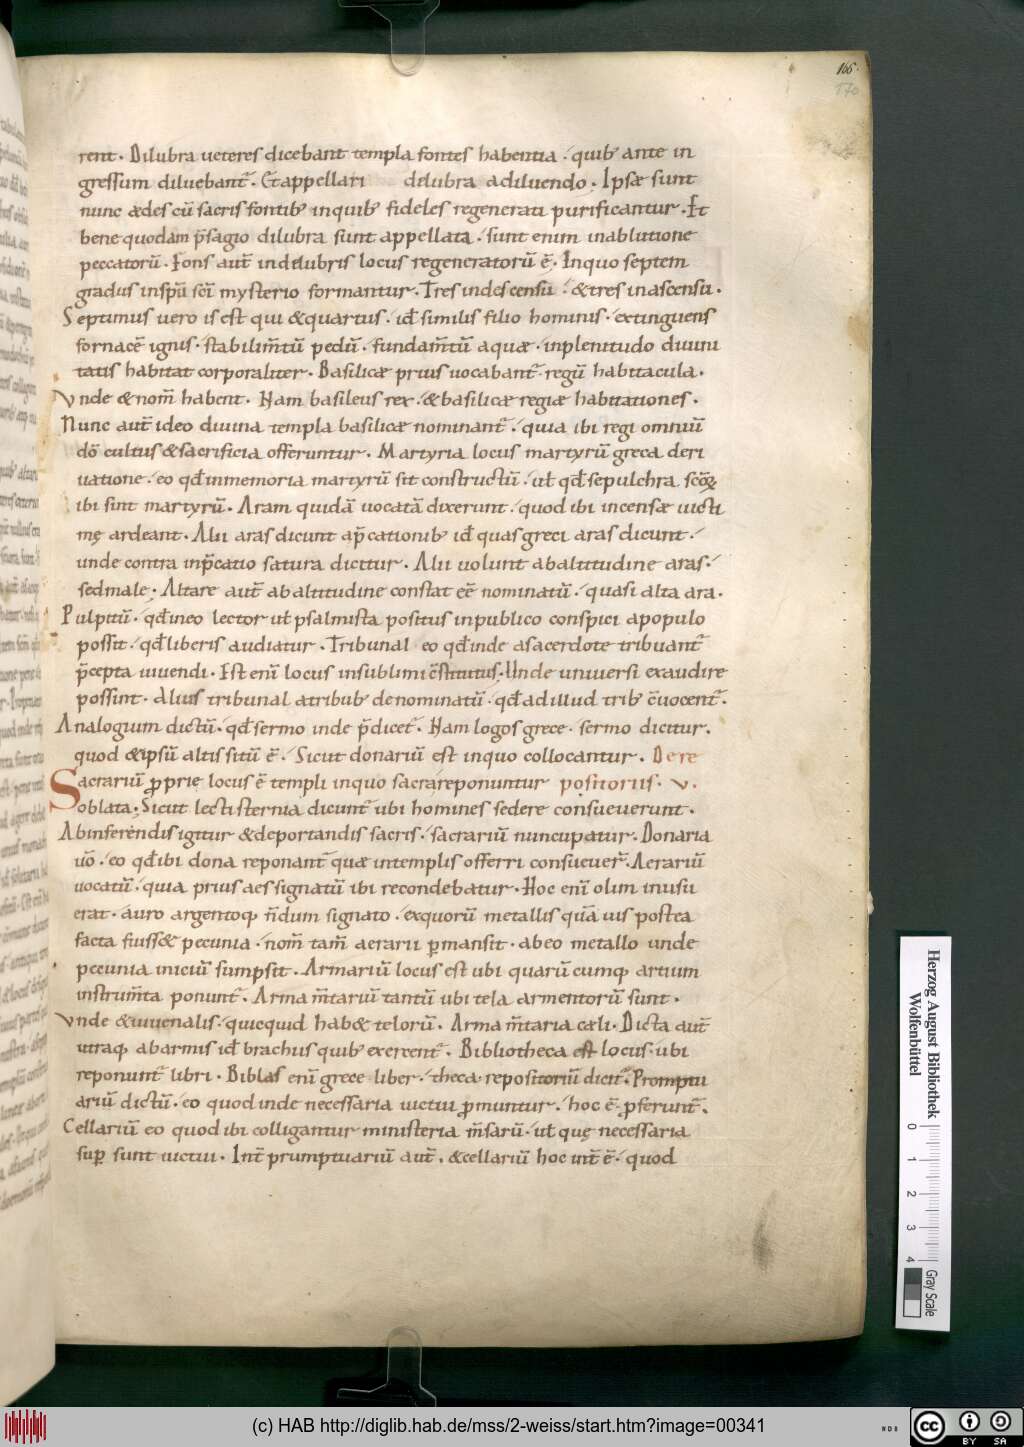 166.
170
rent. Dilubra ueteres dicebant templa fontes habentia. quib; ante in
gressum diluebant̄. Et appellari delubra a diluendo. Ipsæ sunt
nunc ædes cū sacris fontib; inquib; fideles regenerati purificantur. Et
bene quodam p̄sagio dilubra sunt appellata. sunt enim inablutione
peccatorū. Fons aut̄ indelubris locus regeneratorū ē. Inquo septem
gradus inspū sc̄i mysterio formantur. Tres indescensu. &tres inascensu.
Septimus uero is est qui &quartus. id̄ similis filio hominis. extinguens
fornacē ignis. stabilim̄tū pedū. fundam̄tū aquæ. inplenitudo diuini
tatis habitat corporaliter. Basilicæ prius uocabant̄ regū habitacula.
Vnde &nom̄ habent. Nam basileus rex. &basilicæ regiæ habitationes.
Nunc aut̄ ideo diuina templa basilicæ nominant̄. quia ibi regi omniū
dō cultus &sacrificia offeruntur. Martyria locus martyrū greca deri
uatione. eo qd̄ inmemoria martyrū sit constructū. ut̄ qd̄ sepulchra scōꝝ
ibi sint martyrū. Aram quidā uocatā dixerunt. quod ibi incensæ uicti
mę ardeant. Alii aras dicunt ap̄cationib; id̄ quas greci aras dicunt.
unde contra inp̄catio satura dicitur. Alii uolunt abaltitudine aras.
sed male; Altare aut̄ ab altitudine constat eē nominatū. quasi alta ara.
Pulpitū. qd̄ ineo lector ut̄ psalmista positus inpublico conspici apopulo
possit. qd̄ liberis audiatur. Tribunal eo qd̄ inde asacerdote tribuant̄
p̄cepta uiuendi. Est enī locus insublimi c̄stitutus. Unde uniuersi exaudire
possint. Alius tribunal atribub; denominatū. qd̄ adillud trib; c̄uocent̄.
Analogium dictū. qd̄ sermo inde p̄dicet̄. Nam logos grece. sermo dicitur.
quod &ipsū altis sitū ē. Sicut donariū est inquo collocantur. De re
Sacrariū ꝓprię locus ē templi inquo sacra reponuntur positoriis. V.
oblata; Sicut lectisternia dicunt̄ ubi homines sedere consueuerunt.
Abinferendis igitur &deportandis sacris. sacrariū nuncupatur. Donaria
uō. eo qd̄ ibi dona reponant̄ quæ intemplis offerri consueuer̄. Aerariū
uocatū. quia prius aes signatū ibi recondebatur. Hoc enī olim inusu
erat. auro argentoq; n̄dum signato. exquorū metallis quā uis postea
facta fuiss& pecunia. nom̄ tam̄ aerarii ꝑmansit. abeo metallo unde
pecunia iniciū sumpsit. Armariū locus est ubi quarū cumq; artium
instrum̄ta ponunt̄. Arma m̄tariū tantū ubi tela armentorū sunt.
Vnde &iuuenalis. quicquid hab& telorū. Arma m̄taria cæli. Dicta aut̄
utraq; abarmis id̄ brachiis quib; exercent̄. Bibliotheca est locus. ubi
reponunt̄ libri. Biblas enī grece liber. theca repositoriū dicit̄. Promptu
ariū dictū. eo quod inde necessaria uictui ꝓmuntur. hoc ē ꝓferunt̄.
Cellariū eo quod ibi colligantur ministeria m̄sarū. ut̄ quę necessaria
suꝑ sunt uictui. Int̄ prumptuariū aut̄. &cellariū hoc int̄ ē. quod
Herzog August Bibliothek
Wolfenbüttel
0 1 2 3 4
Gray Scale
(c) HAB http://diglib.hab.de/mss/2-weiss/start.htm?image=00341
cc BY SA